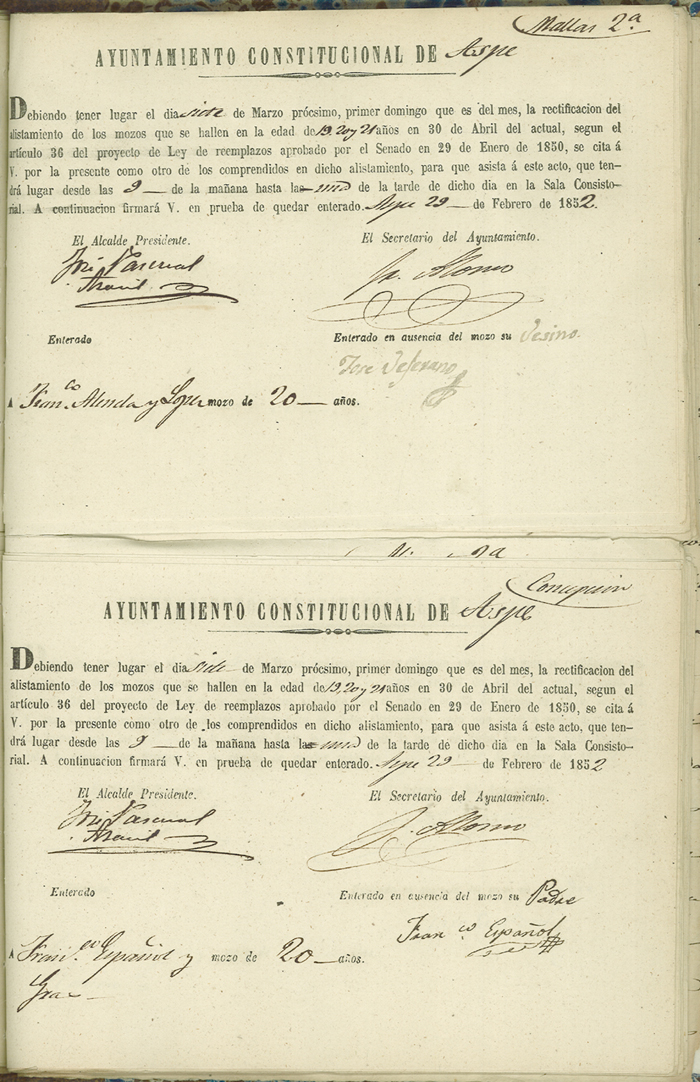 Mallas 2ª
AYUNTAMIENTO CONSTITUCIONAL DE Aspe
Debiendo tener lugar el dia siete de Marzo prócsimo, primer domingo que es del mes, la rectificacion del
alistamiento de los mozos que se hallen en la edad de 19, 20 y 21 años en 30 de Abril del actual, segun el
artículo 36 del proyecto de Ley de reemplazos aprobado por el Senado en 29 de Enero de 1850, se cita á
V. por la presente como otro de los comprendidos en dicho alistamiento, para que asista á este acto, que ten-
drá lugar desde las 9 de la mañana hasta la una de la tarde de dicho dia en la Sala Consisto-
rial. A continuacion firmará V. en prueba de quedar enterado. Aspe 29 de Febrero de 1852.
El Alcalde Presidente. El Secretario del Ayuntamiento.
José Pascual
J. Alonso
Enterado Enterado en ausencia del mozo su Vesino.
Jose
A Franco. Alenda y Lopez mozo de 20 años.
2ª
Concepcion
AYUNTAMIENTO CONSTITUCIONAL DE Aspe
Debiendo tener lugar el dia siete de Marzo prócsimo, primer domingo que es del mes, la rectificacion del
alistamiento de los mozos que se hallen en la edad de 19, 20 y 21 años en 30 de Abril del actual, segun el
artículo 36 del proyecto de Ley de reemplazos aprobado por el Senado en 29 de Enero de 1850, se cita á
V. por la presente como otro de los comprendidos en dicho alistamiento, para que asista á este acto, que ten-
drá lugar desde las 9 de la mañana hasta la una de la tarde de dicho dia en la Sala Consisto-
rial. A continuacion firmará V. en prueba de quedar enterado. Aspe 29 de Febrero de 1852
El Alcalde Presidente. El Secretario del Ayuntamiento.
José Pascual
J. Alonso
Enterado Enterado en ausencia del mozo su Padre
Franco Español
A Franco. Español y mozo de 20 años.
Grao